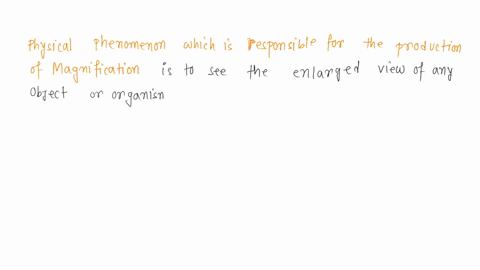 Physical phenomenon which is responsible for the production
of Magnification is to see the enlarged view of any
Object or organisn